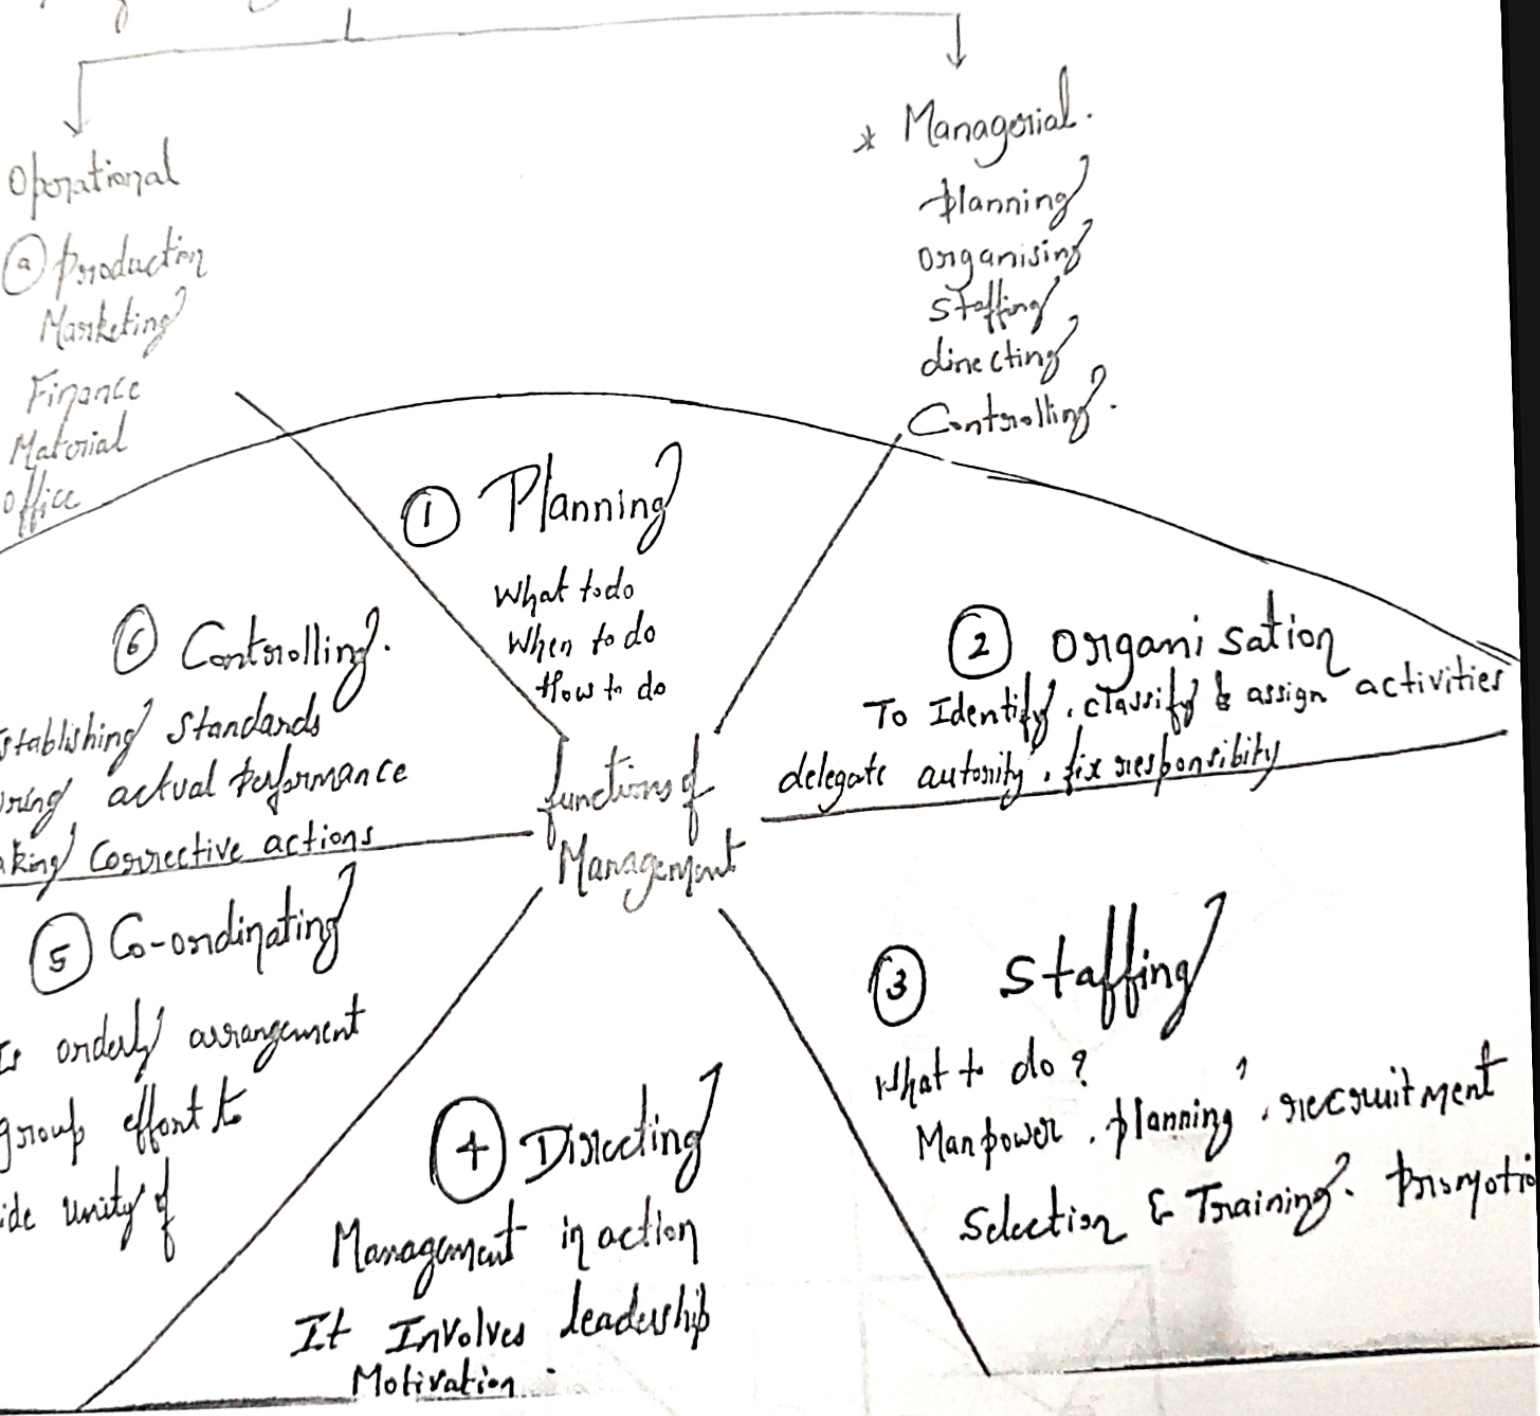 Operational
ⓐ Production
Marketing
Finance
Material
office
* Managerial.
planning
organising
staffing
directing
Controlling.
① Planning
What to do
When to do
How to do
② organisation
To Identify, classify & assign activities
delegate autority, fix responsibity
③ Staffing
What to do?
Manpower, planning, recruitment
Selection & Training. Promotio
④ Directing
Management in action
It Involves leadership
Motivation.
⑤ Co-ordinating
Is orderly arrangement
group effort to
ide unity of
⑥ Controlling.
stablishing standards
uring actual performance
aking corrective actions
functions of
Management